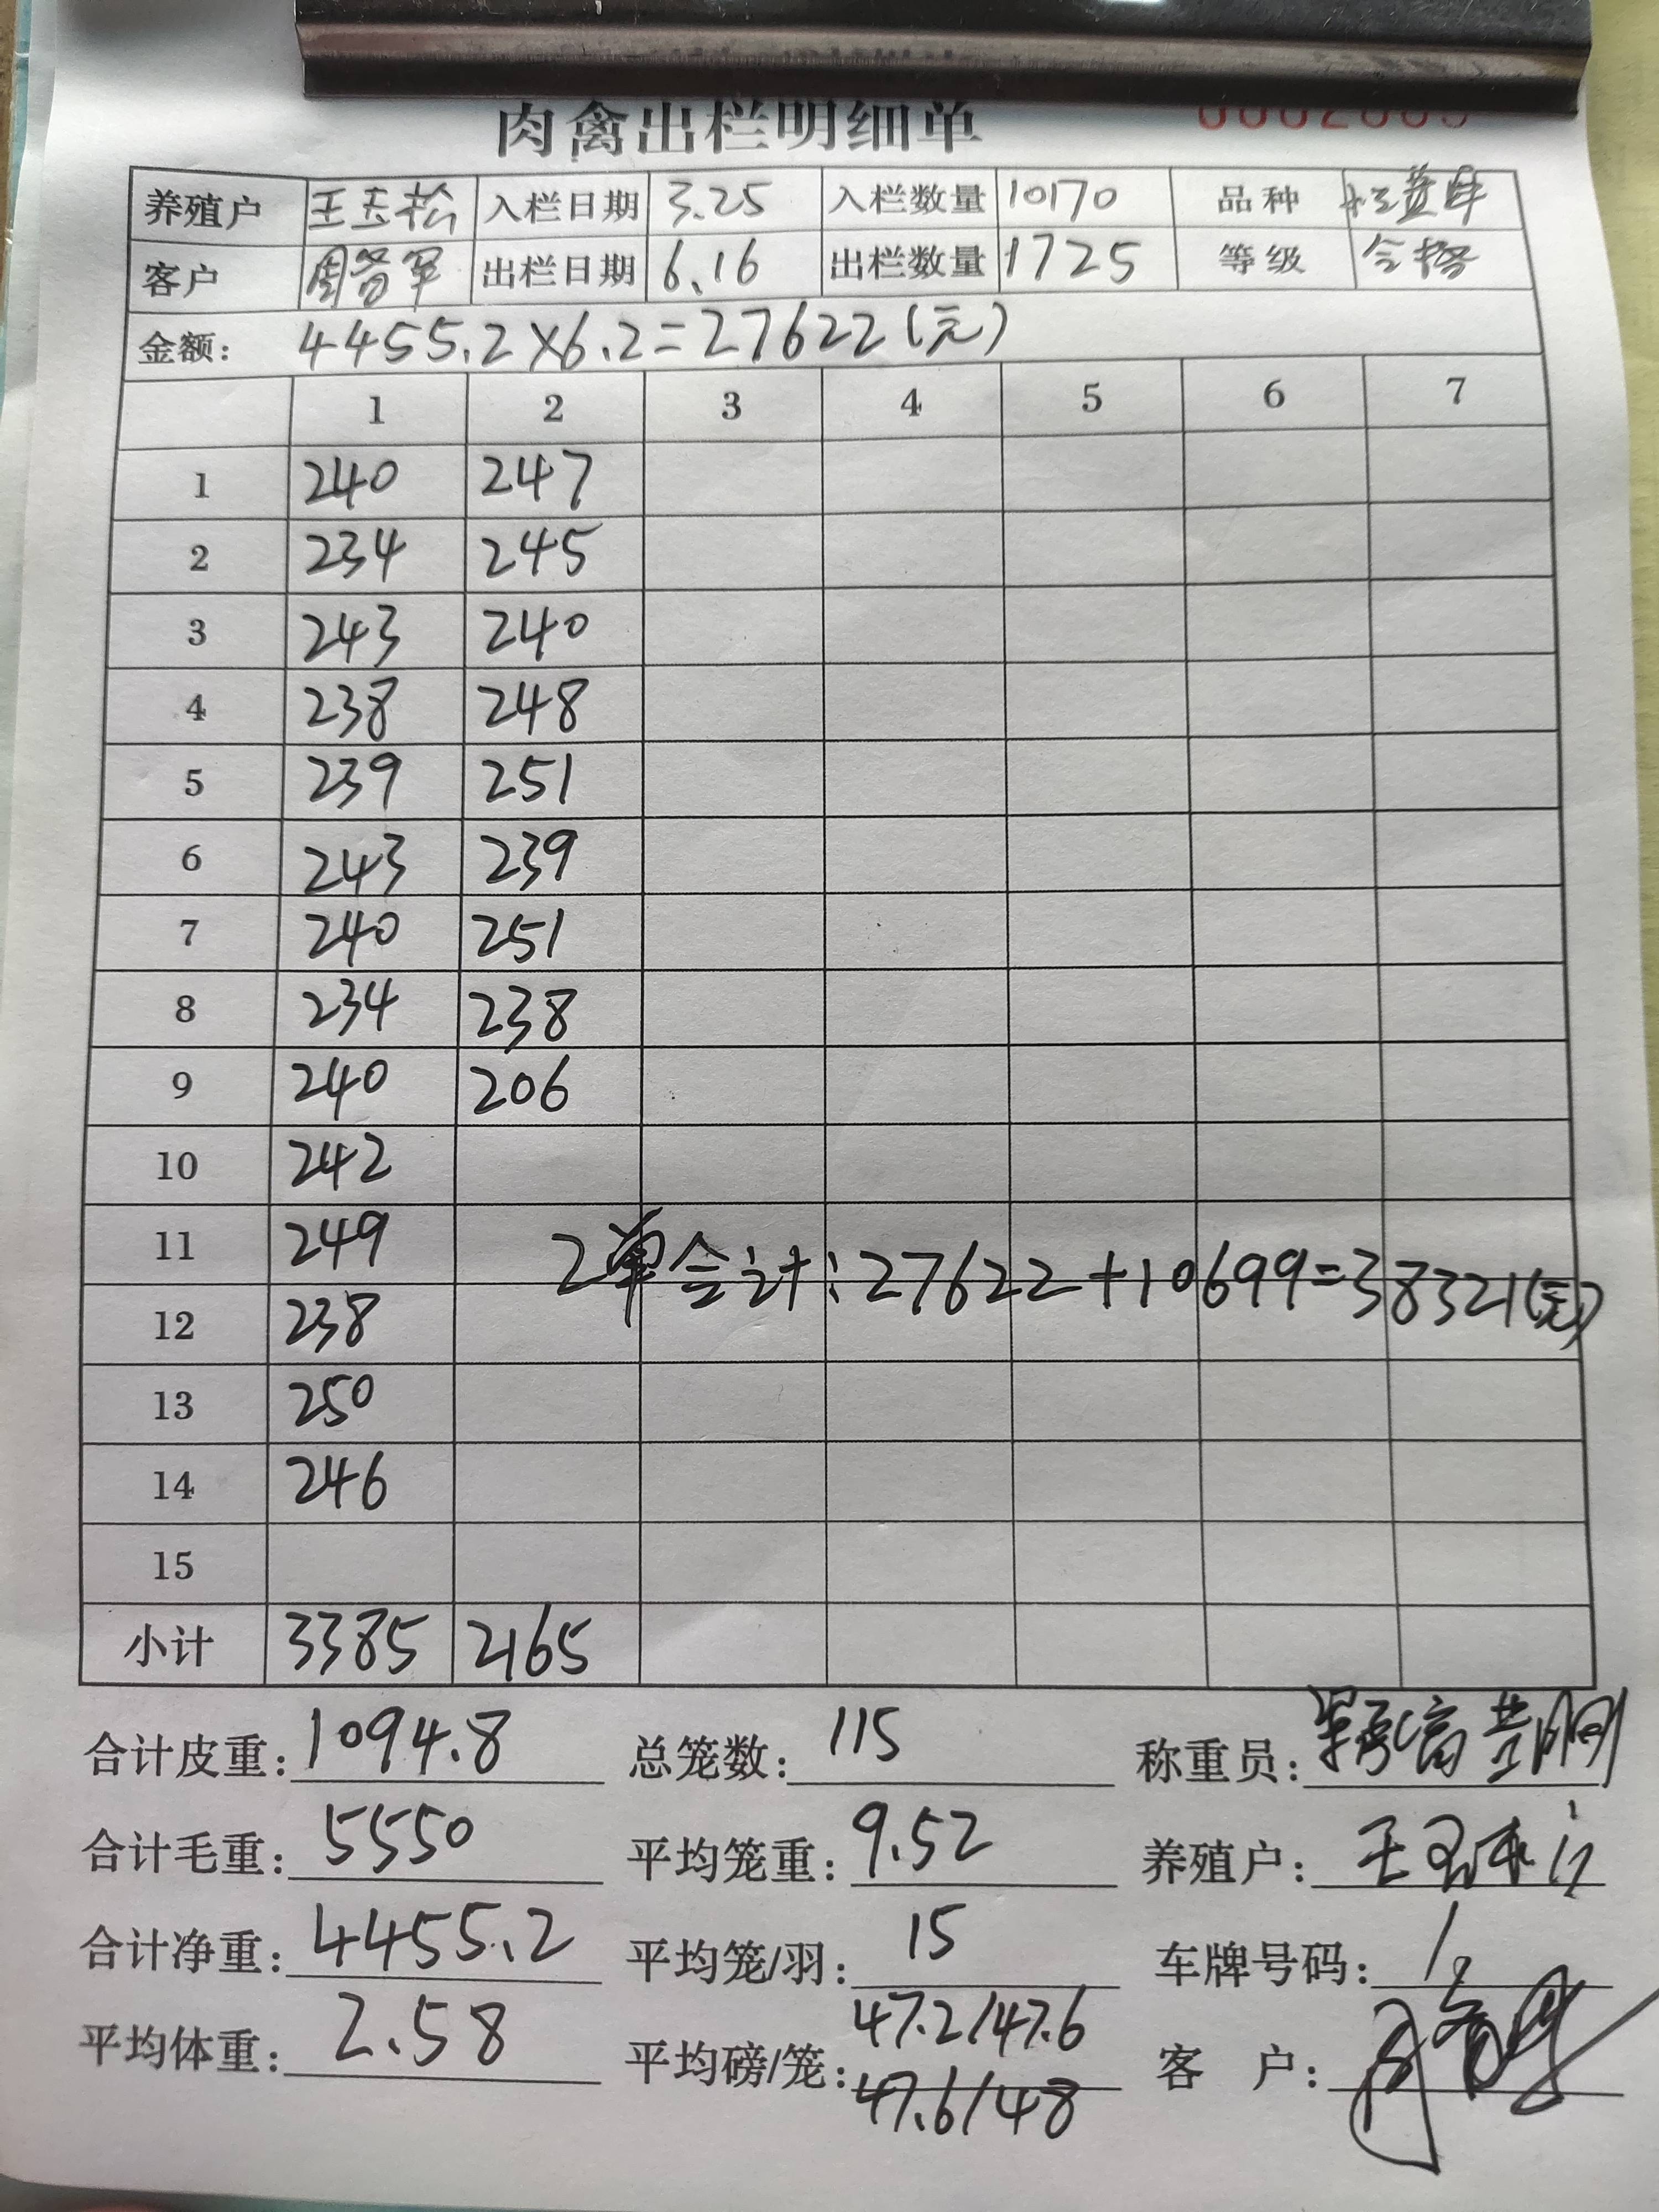 肉禽出栏明细单
养殖户 王玉松 入栏日期 3.25 入栏数量 10170 品种
客户 出栏日期 6.16 出栏数量 1725 等级 合格
金额: 4455.2×6.2=27622(元)
1 2 3 4 5 6 7
1 240 247
2 234 245
3 243 240
4 238 248
5 239 251
6 243 239
7 240 251
8 234 238
9 240 206
10 242
11 249
2单合计:27622+10699=38321(元)
12 238
13 250
14 246
15
小计 3385 2165
合计皮重: 1094.8 总笼数: 115 称重员:
合计毛重: 5550 平均笼重: 9.52 养殖户:
合计净重: 4455.2 平均笼/羽: 15 车牌号码:
平均体重: 2.58 平均磅/笼: 47.2/47.6 客 户:
47.6/48